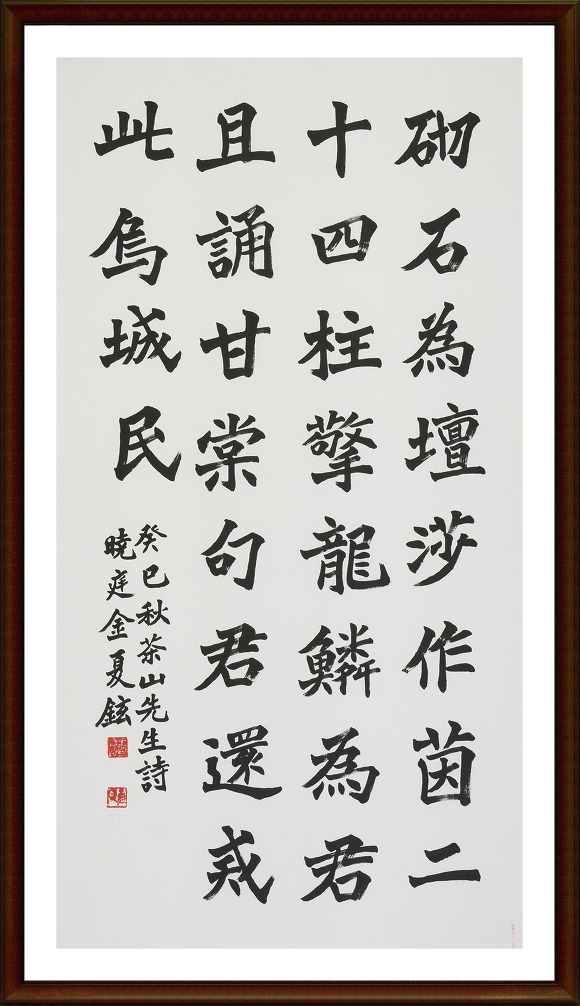 砌石為壇莎作茵二
十四柱擎龍鱗為君
且誦甘棠句君還戒
此烏城民
癸巳秋茶山先生詩
曉庭金夏鉉